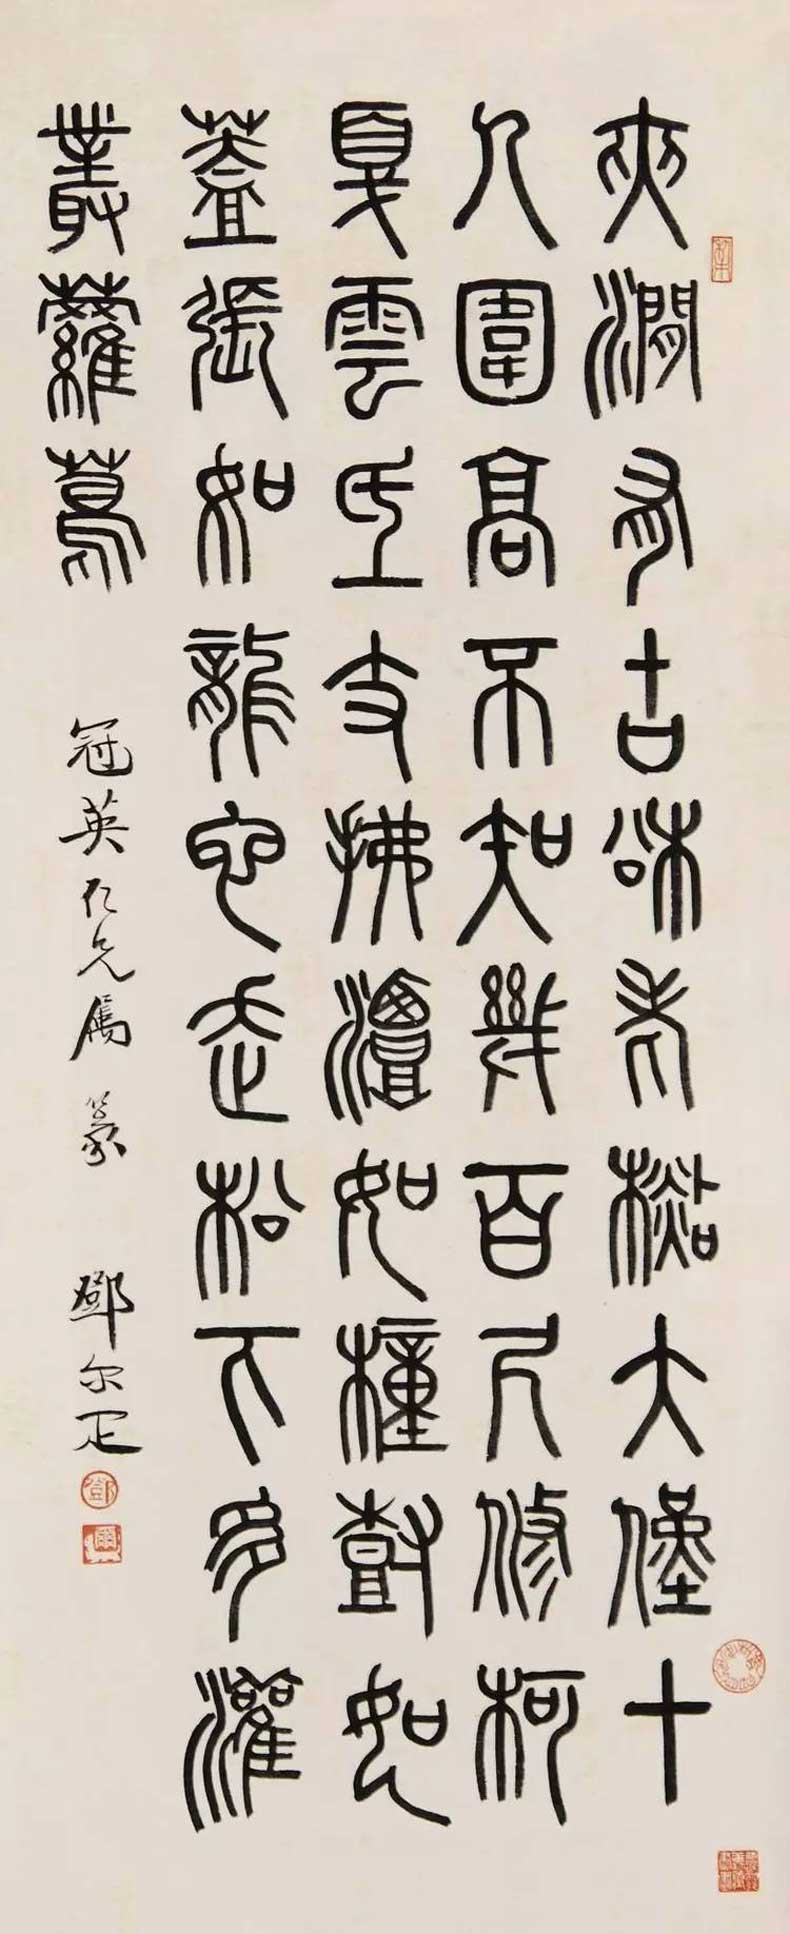 夾澗有古松老檆大僅十
人圍高不知幾百尺修柯
戛雲氐支拂潭如橦尌如
蓋張如龍它走松下多灌
叢蘿蔦
冠英仁兄屬篆 鄧尔疋
鄧